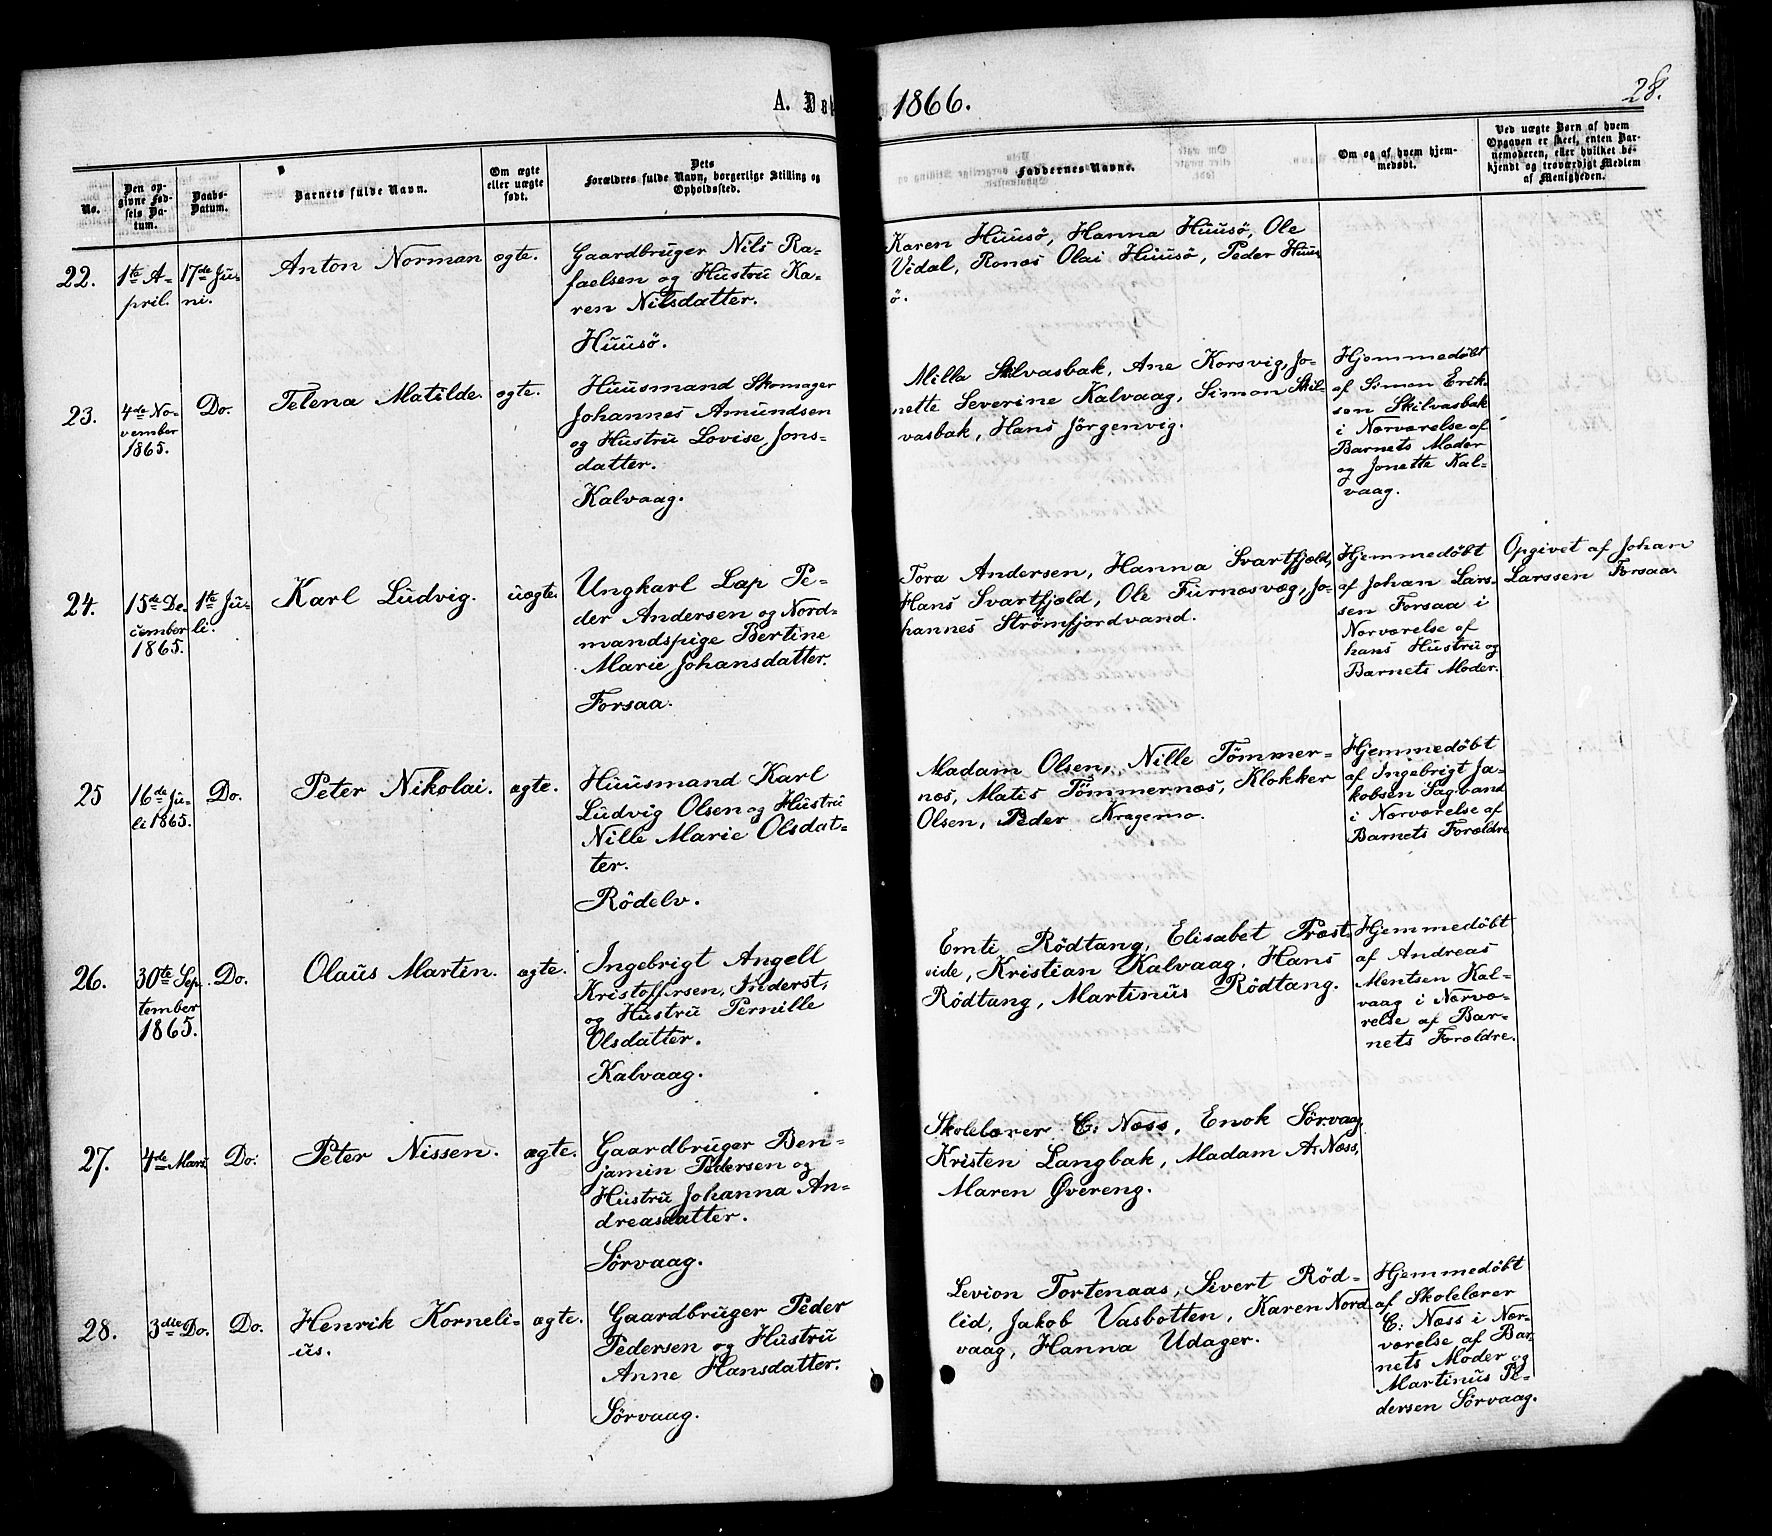 A. Døb
1866.
28.
No.
Den op-
givne Fød-
sels Da-
tum.
Daabs-
Datum.
Barnets fulde Navn.
Om ægte
eller uægte
født.
Dets
Forældres fulde Navn, borgerlige Stilling og
Opholdssted.
Faddernes Navne.
Om og af hvem hjem-
medøbt.
Ved uægte Børn af hvem
Opgaven er skeet, enten Bar-
nemoderen, eller hvilket be-
kjendt og troværdigt Medlem
af Menigheden.
22.
1te A-
pril.
17de Ju-
ni.
Anton Norman
ægte.
Gaardbruger Nils Ra-
faelsen og Hustru Ka-
ren Nilsdatter.
Huusö.
Karen Huusö, Hanna Huusö, Ole
Vidal, Ronæs Olai Huusö, Peder Huus
ö.
23.
4de No-
vember
1865.
Do.
Telena Matilde.
ægte.
Huusmand Skomager
Johannes Amundsen
og Hustru Lovise Jons-
datter.
Kalvaag.
Milla Skilvasbak, Ane Korsvig, Jo-
nette Severine Kalvaag, Simon Skil-
vasbak, Hans Jörgenvig.
Hjemmedöbt
af Simon Erik-
sen Skilvasbak
i Nærværelse af
Barnets Moder
og Jonette Kal-
vaag.
24.
15de De-
cember
1865.
1te Ju-
li.
Karl Ludvig.
uægte.
Ungkarl Lap Pe-
der Andersen og Nord-
mandspige Bertine
Marie Johansdatter.
Forsaa.
Tora Andersen, Hanna Svartfjeld,
Hans Svartfjeld, Ole Furnesvæg, Jo-
hannes Strömfjordvand.
Hjemmedöbt
af Johan Lars-
sen Forsaa i
Nærværelse af
hans Hustru og
Barnets Moder.
Opgivet af Johan
Larssen Forsaa.
25
16de Ju-
li 1865.
Do.
Peter Nikolai.
ægte.
Huusmand Karl
Ludvig Olsen og Hustru
Nille Marie Olsdat-
ter.
Rödelv.
Madam Olsen, Nille Tömmer-
nes, Matis Tömmernes, Klokker
Olsen, Peder Kragemo.
Hjemmedöbt
af Ingebrigt Ja-
kobsen Sagvand
i Nærværelse af
Barnets Forældre
26.
30te Sep-
tember
1865.
Do.
Olaus Martin.
ægte.
Ingebrigt Angell
Kristoffersen, Inderst,
og Hustru Pernille
Olsdatter.
Kalvaag.
Emti Rödtang, Elisabet Præst-
vide, Kristian Kalvaag, Hans
Rödtang, Martinus Rödtang.
Hjemmedöbt
af Andreas
Mentsen Kal-
vaag i Nærvæ-
relse af Bar-
nets Forældre.
27.
4de Mars
Do.
Peter Nissen.
ægte.
Gaardbruger Ben-
jamin Pedersen og
Hustru Johanna An-
dreasdatter.
Sörvaag.
Skolelærer C: Næss, Enok Sörvaag,
Kristen Langbak, Madam A: Næss,
Maren Øvereng.
28.
3die Do.
Do.
Henrik Korneli-
us.
ægte.
Gaardbruger Peder
Pedersen og Hustru
Anne Hansdatter.
Sörvaag.
Levion Tortenaas, Sivert Röd-
lid, Jakob Vasbotten, Karen Nord
vaag, Hanna Udager.
Hjemmedöbt
af Skolelærer
C: Næss i Nær-
værelse af Bar-
nets Moder og
Martinus Pe-
dersen Sörvaag.